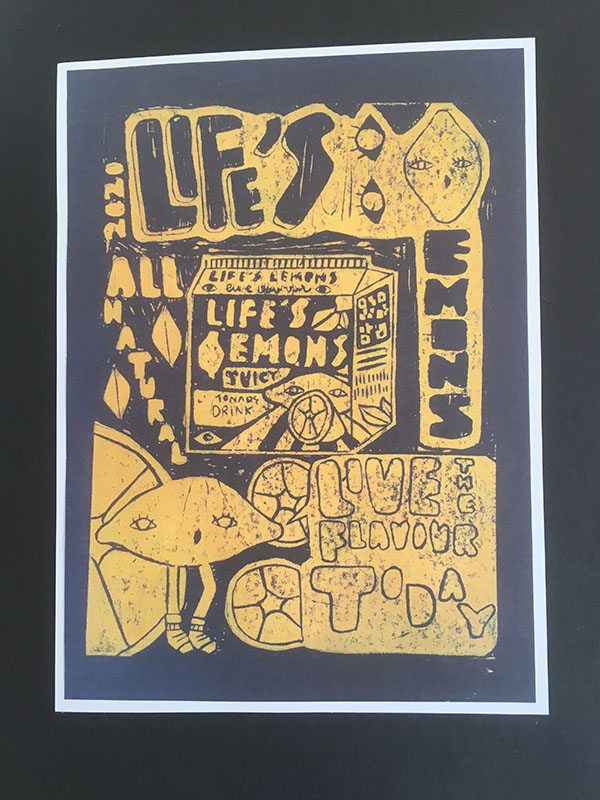 LIFE'S
EMONS
2020
ALL
NATURAL
LIFE'S LEMONS
LIFE'S
EMONS
DRINK
LIVE
THE
FLAVOUR
TODAY